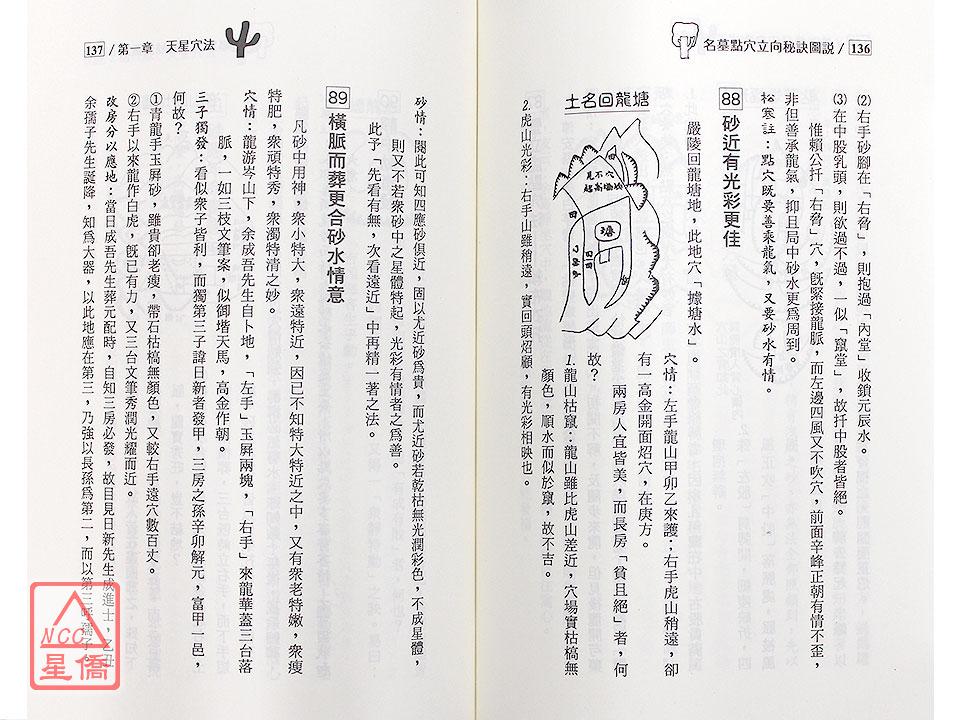 名墓點穴立向秘訣圖説 / 136
⑵右手砂腳在「右脅」，則抱過「內堂」收鎖元辰水。
⑶在中股乳頭，則欲過不過，一似「竄堂」，故扦中股者皆絕。
惟賴公扦「右脅」穴，既緊接龍脈，而左邊四風又不吹穴，前面辛峰正朝有情不歪，
非但善承龍氣，抑且局中砂水更爲周到。
松寒註：點穴既要善乘龍氣，又要砂水有情。
88 砂近有光彩更佳
嚴陵回龍塘地，此地穴「據塘水」。
土名回龍塘
穴情：左手龍山甲卯乙來護；右手虎山稍遠，卻
有一高金開面炤穴，在庚方。
兩房人宜皆美，而長房「貧且絕」者，何
故？
1.龍山枯竄：龍山雖比虎山差近，穴場實枯槁無
顏色，順水而似於竄，故不吉。
2.虎山光彩：右手山雖稍遠，實回頭炤顧，有光彩相映也。
137 / 第一章　天星穴法
砂情：閱此可知四應砂俱近，固以尤近砂爲貴，而尤近砂若乾枯無光潤彩色，不成星體，
則又不若衆砂中之星體特起，光彩有情者之爲善。
此予「先看有無，次看遠近」中再精一著之法。
89 橫脈而葬更合砂水情意
凡砂中用神，衆小特大，衆遠特近，因已不知特大特近之中，又有衆老特嫩，衆瘦
特肥，衆頑特秀，衆濁特清之妙。
穴情：龍游岑山下，余成吾先生自卜地，「左手」玉屏兩塊，「右手」來龍華蓋三台落
脈，一如三枝文筆案，似御堦天馬，高金作朝。
三子獨發：看似衆子皆利，而獨第三子諱日新者發甲，三房之孫辛卯解元，富甲一邑，
何故？
①青龍手玉屏砂，雖貴卻老瘦，帶石枯槁無顏色，又較右手遠穴數百丈。
②右手以來龍作白虎，既已有力，又三台文筆秀潤光耀而近。
改房分以應地：當日成吾先生葬元配時，自知三房必發，故目見日新先生成進士，乙丑
余孺子先生誕降，知爲大器，以此地應在第三，乃強以長孫爲第二，而以第三呼孺子。
NCC
星僑